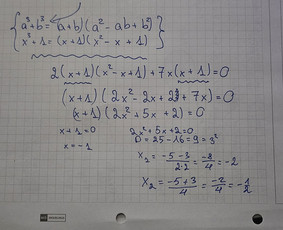 a³+b³=(a+b)(a²-ab+b²)
x³+1=(x+1)(x²-x+1)
2(x+1)(x²-x+1)+7x(x+1)=0
(x+1)(2x²-2x+2+7x)=0
(x+1)(2x²+5x+2)=0
x+1=0
x=-1
2x²+5x+2=0
D=25-16=9=3²
x₁=(-5-3)/(2·2)=-8/4=-2
x₂=(-5+3)/4=-2/4=-1/2